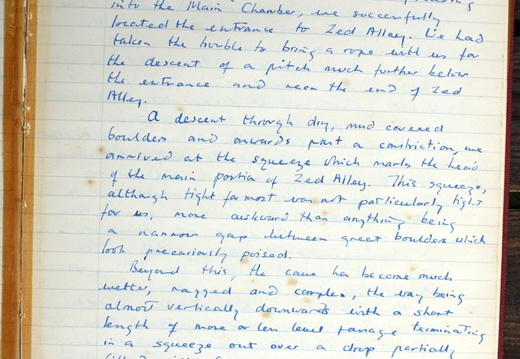 into the Main Chamber, we succesfully
located the entrance to Zed Alley. We had
taken the trouble to bring a rope with us for
the descent of a pitch much further below
the entrance and near the end of Zed
Alley.
A descent through dry, mud covered
boulders and onwards past a constriction, we
arrived at the squeeze which marks the head
of the main portion of Zed Alley. This squeeze,
although tight for most was not particularly tight
for us, more awkward than anything being
a narrow gap between great boulders which
look precariously poised.
Beyond this, the cave has become much
wetter, ragged and complex, the way being
almost vertically downwards with a short
length of more or less level passage terminating
in a squeeze out over a drop partially